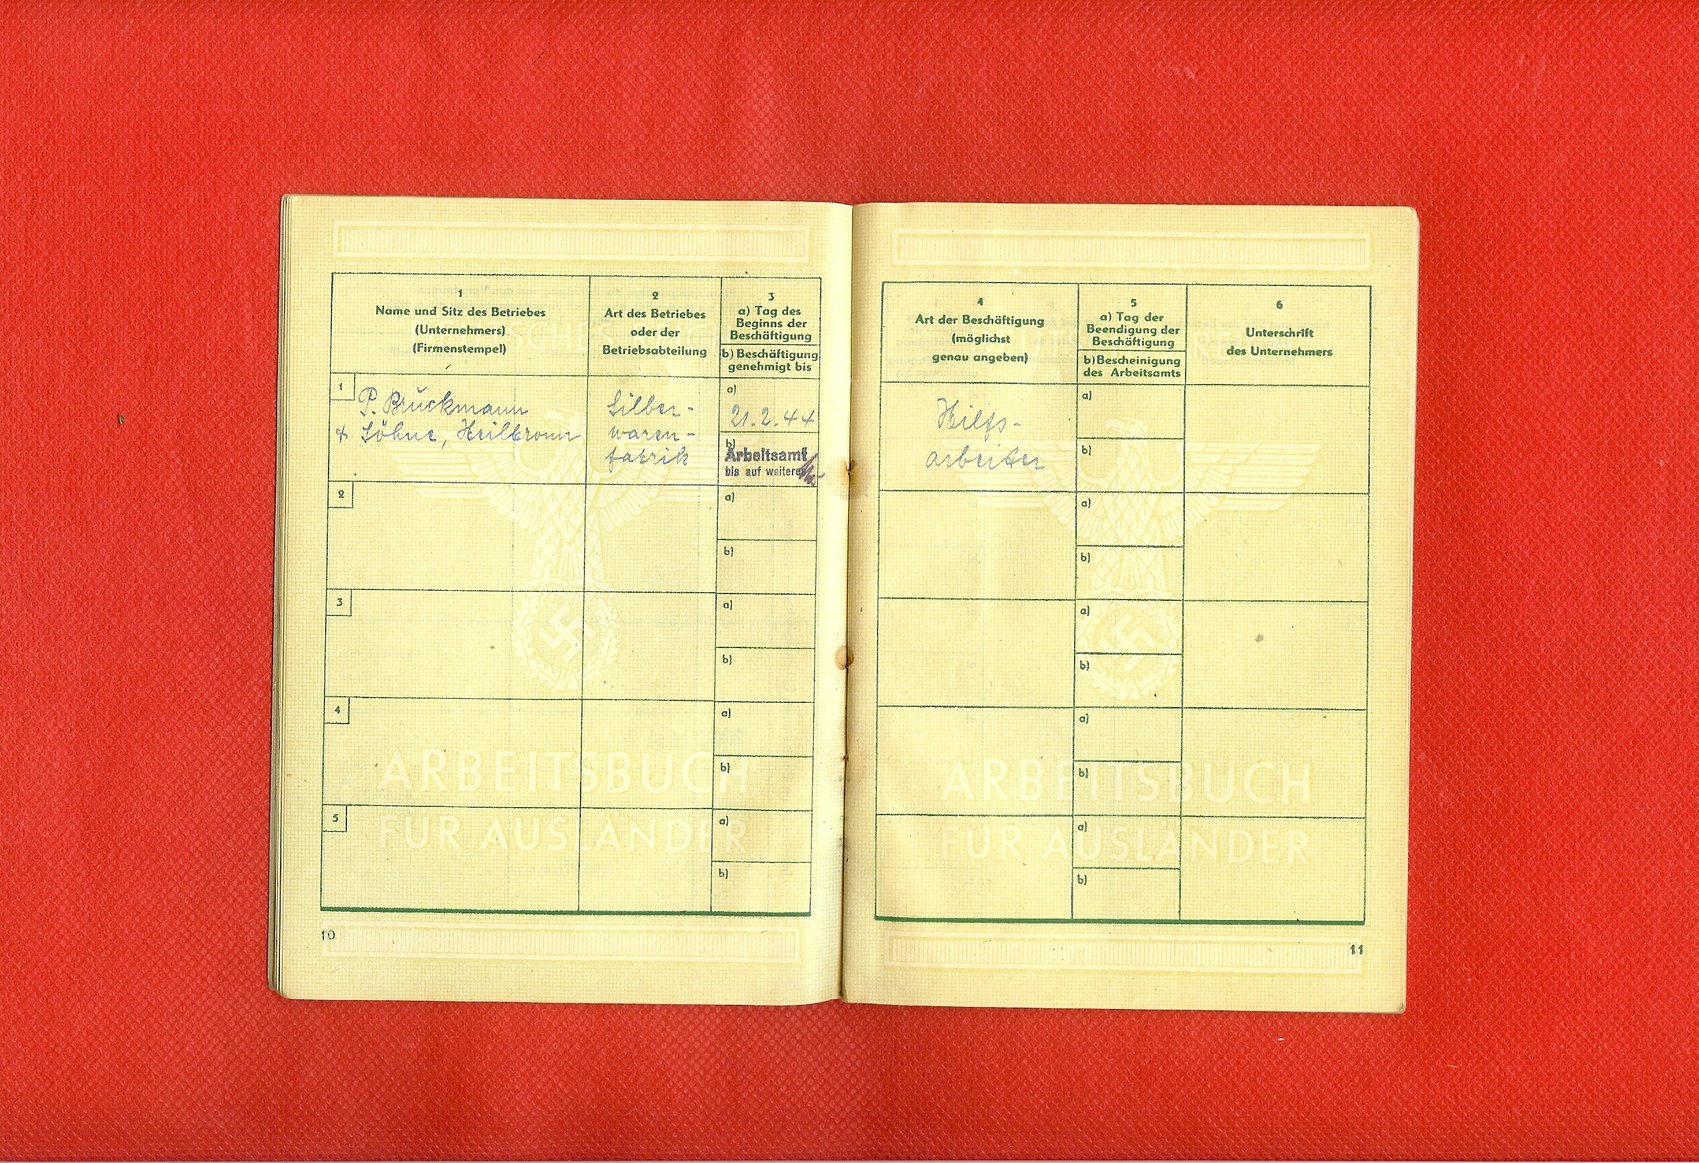 1
Name und Sitz des Betriebes
(Unternehmers)
(Firmenstempel)
2
Art des Betriebes
oder der
Betriebsabteilung
3
a) Tag des
Beginns der
Beschäftigung
b) Beschäftigung
genehmigt bis
1
P. Bruckmann
& Söhne, Heilbronn
Silber-
waren-
fabrik
a)
21.2.44
b)
Arbeitsamt
bis auf weiteres
2
a)
b)
3
a)
b)
4
a)
b)
5
a)
b)
ARBEITSBUCH
FÜR AUSLÄNDER
10
4
Art der Beschäftigung
(möglichst
genau angeben)
5
a) Tag der
Beendigung der
Beschäftigung
b) Bescheinigung
des Arbeitsamts
6
Unterschrift
des Unternehmers
Hilfs-
arbeiter
a)
b)
a)
b)
a)
b)
a)
b)
a)
b)
ARBEITSBUCH
FÜR AUSLÄNDER
11